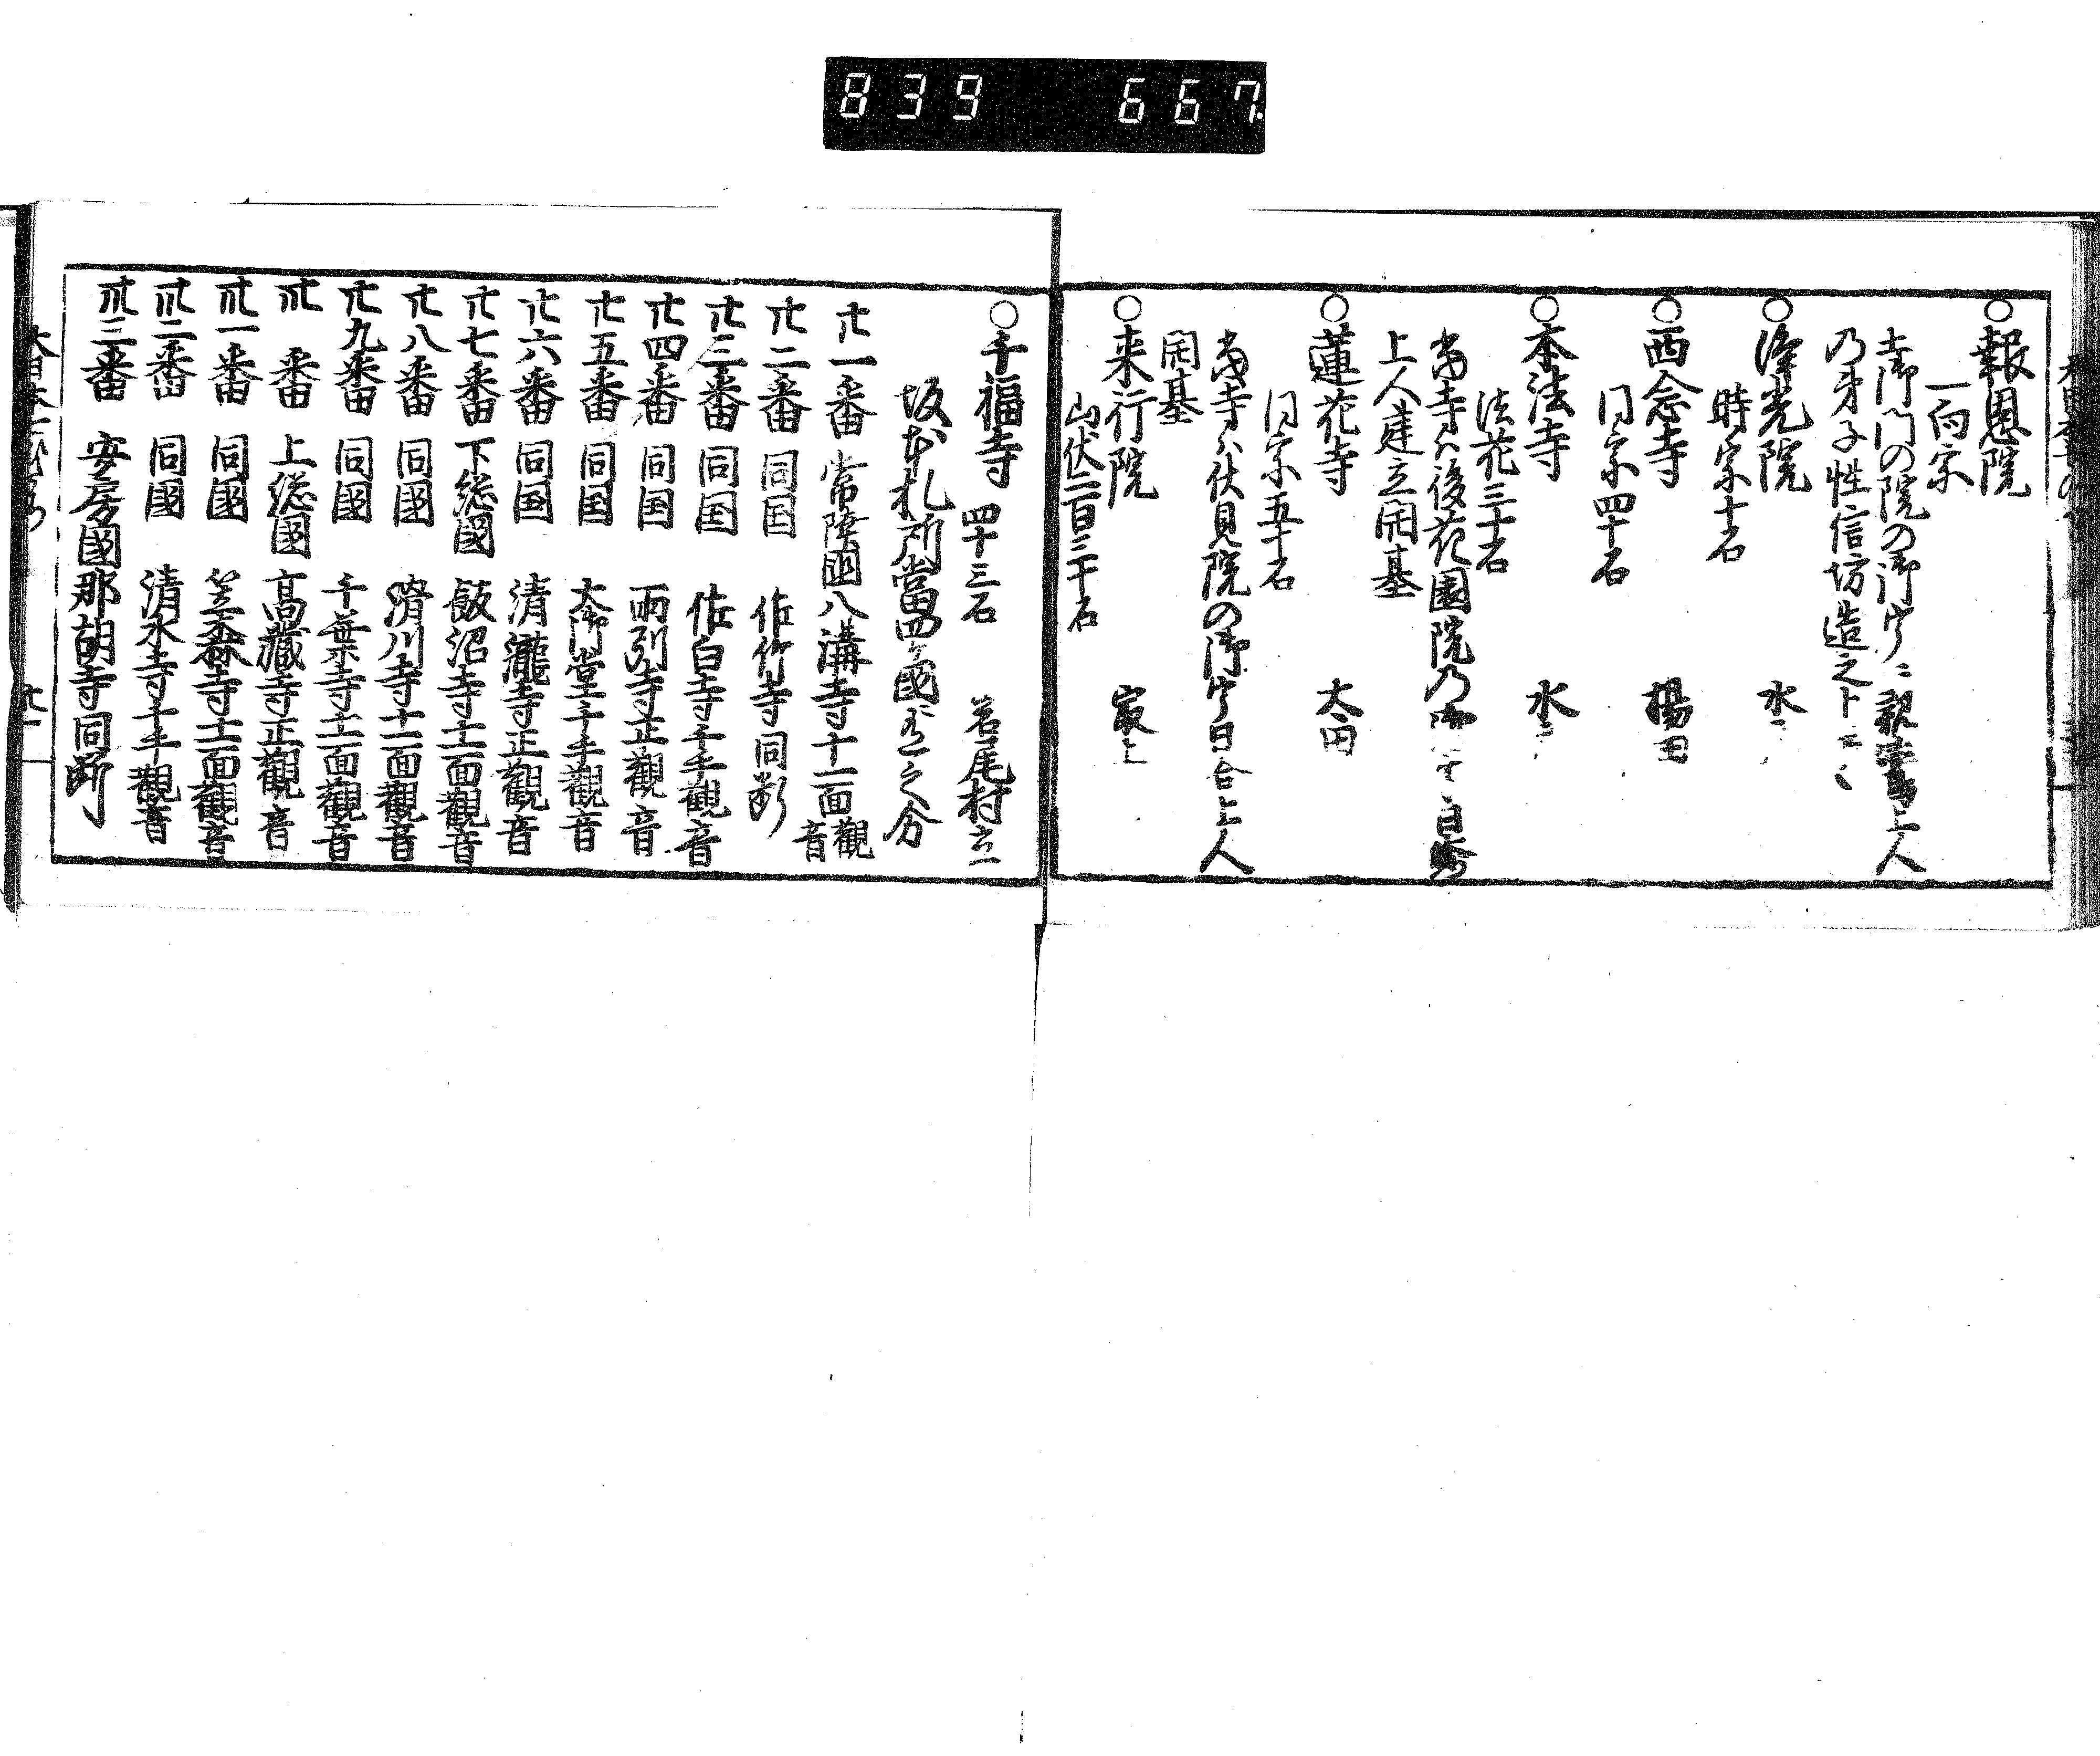 839 667
○報恩院
一向宗
土御門の院の御宇ニ親鸞上人
乃弟子性信坊造之ト云〻
○浄光院 水戸
時宗十石
○西念寺 楊田
同宗四十石
○本法寺 水戸
法花三十石
当寺ハ後花園院乃御 日
上人建立開基
○蓮花寺 大田
同宗五十石
当寺ハ伏見院の御宇日合上人
開基
○来行院
山伏二百三十石
○千福寺 四十三石 若尾村立
坂東札所當四ヶ國ニ有之分
廿一番 常陸國八溝寺十一面觀音
廿二番 同国 佐竹寺同断
廿三番 同国 佐白寺千手觀音
廿四番 同国 雨引寺正觀音
廿五番 同国 大御堂千手觀音
廿六番 同国 清瀧寺正觀音
廿七番 下総國 飯沼寺十一面觀音
廿八番 同國 滑川寺十一面觀音
廿九番 同國 千葉寺十一面觀音
卅番 上総國 高藏寺正觀音
卅一番 同國 笠森寺十一面觀音
卅二番 同國 清水寺千手觀音
卅三番 安房國那胡寺同断